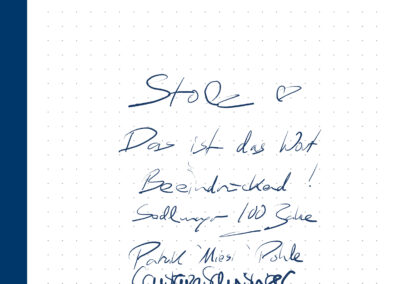 Stolz ♡
Das ist das Wort
Beeindruckend!
100 Jahre
Patrik "Miesi" Pohle